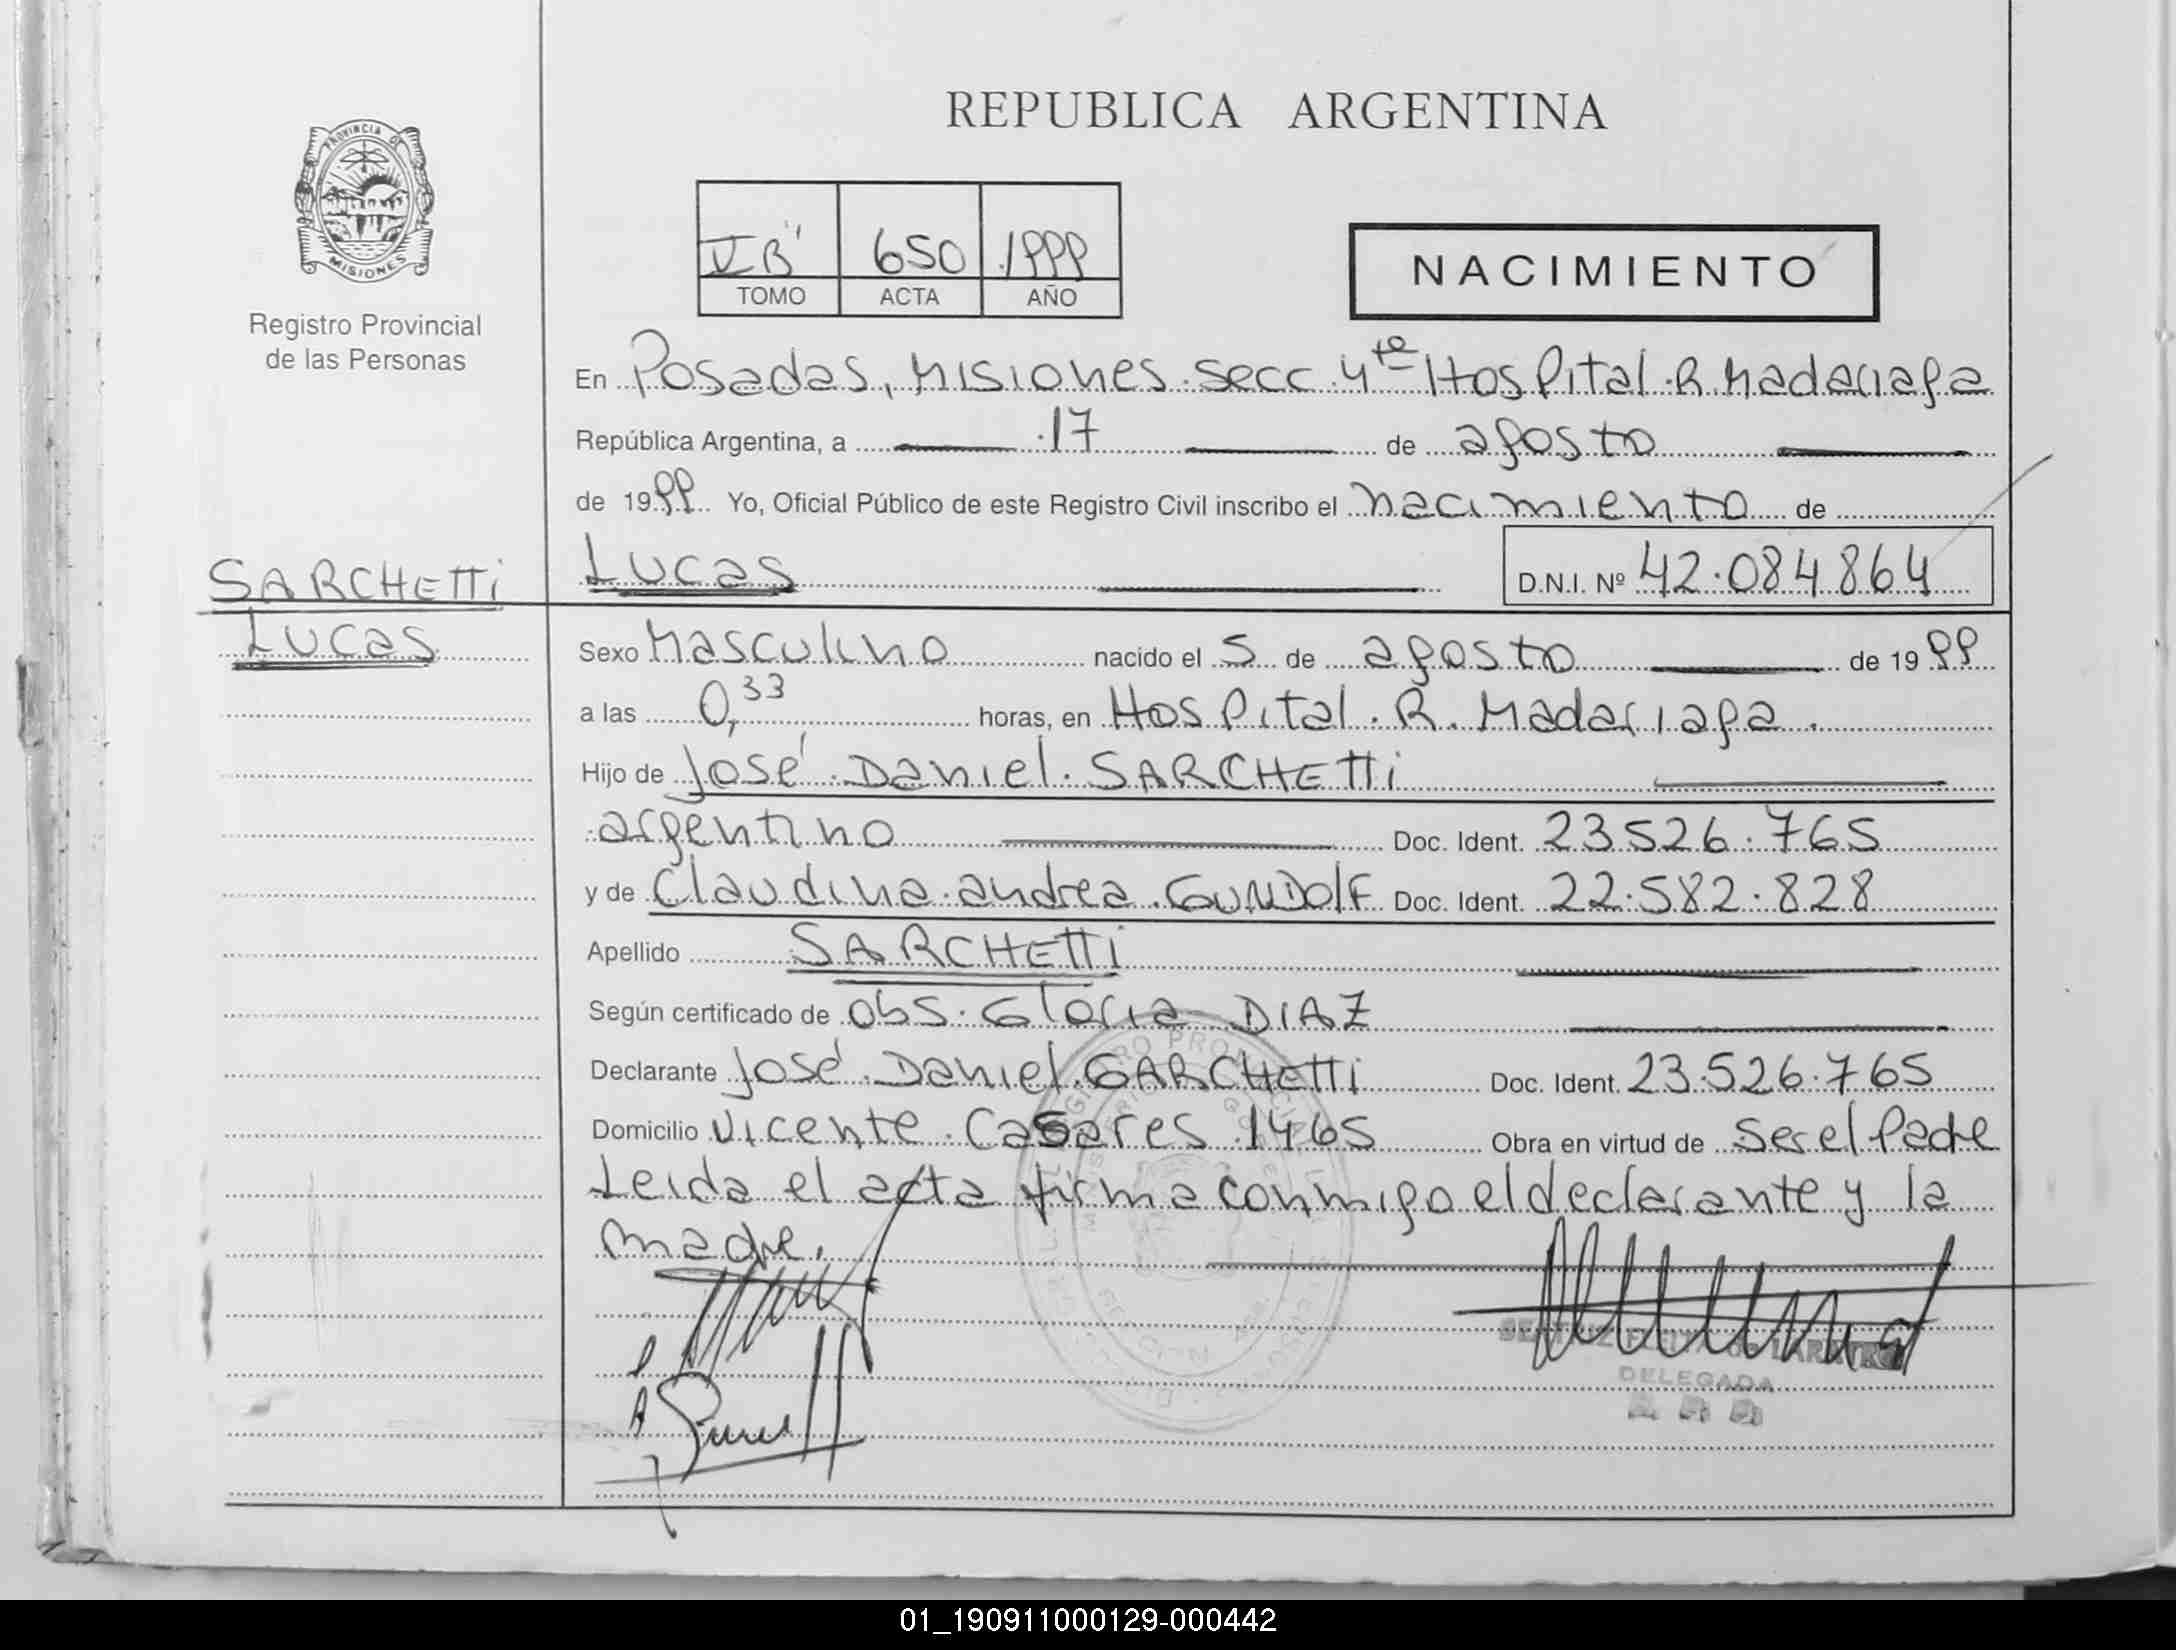 REPUBLICA ARGENTINA
PROVINCIA DE
MISIONES
Registro Provincial
de las Personas
V "B" 650 1999
TOMO ACTA AÑO
NACIMIENTO
En Posadas, Misiones secc 4ta Hospital R. Madariaga
República Argentina, a 17 de agosto
de 1999 Yo, Oficial Público de este Registro Civil inscribo el nacimiento de
Lucas D.N.I. Nº 42.084864
SARCHETTi
Lucas
Sexo Masculino nacido el 5 de agosto de 1999
a las 0,33 horas, en Hospital R. Madariaga.
Hijo de José Daniel SARCHETTi
argentino Doc. Ident. 23526.765
y de Claudina andrea GUNDOlF Doc. Ident. 22.582.828
Apellido SARCHETTi
Según certificado de Obs. Gloria DIAZ
Declarante José Daniel SARCHETTi Doc. Ident. 23.526.765
Domicilio Vicente Casares 1465 Obra en virtud de Ser el Padre
Leida el acta firma conmigo el declarante y la
madre.
DELEGADA
01_190911000129-000442